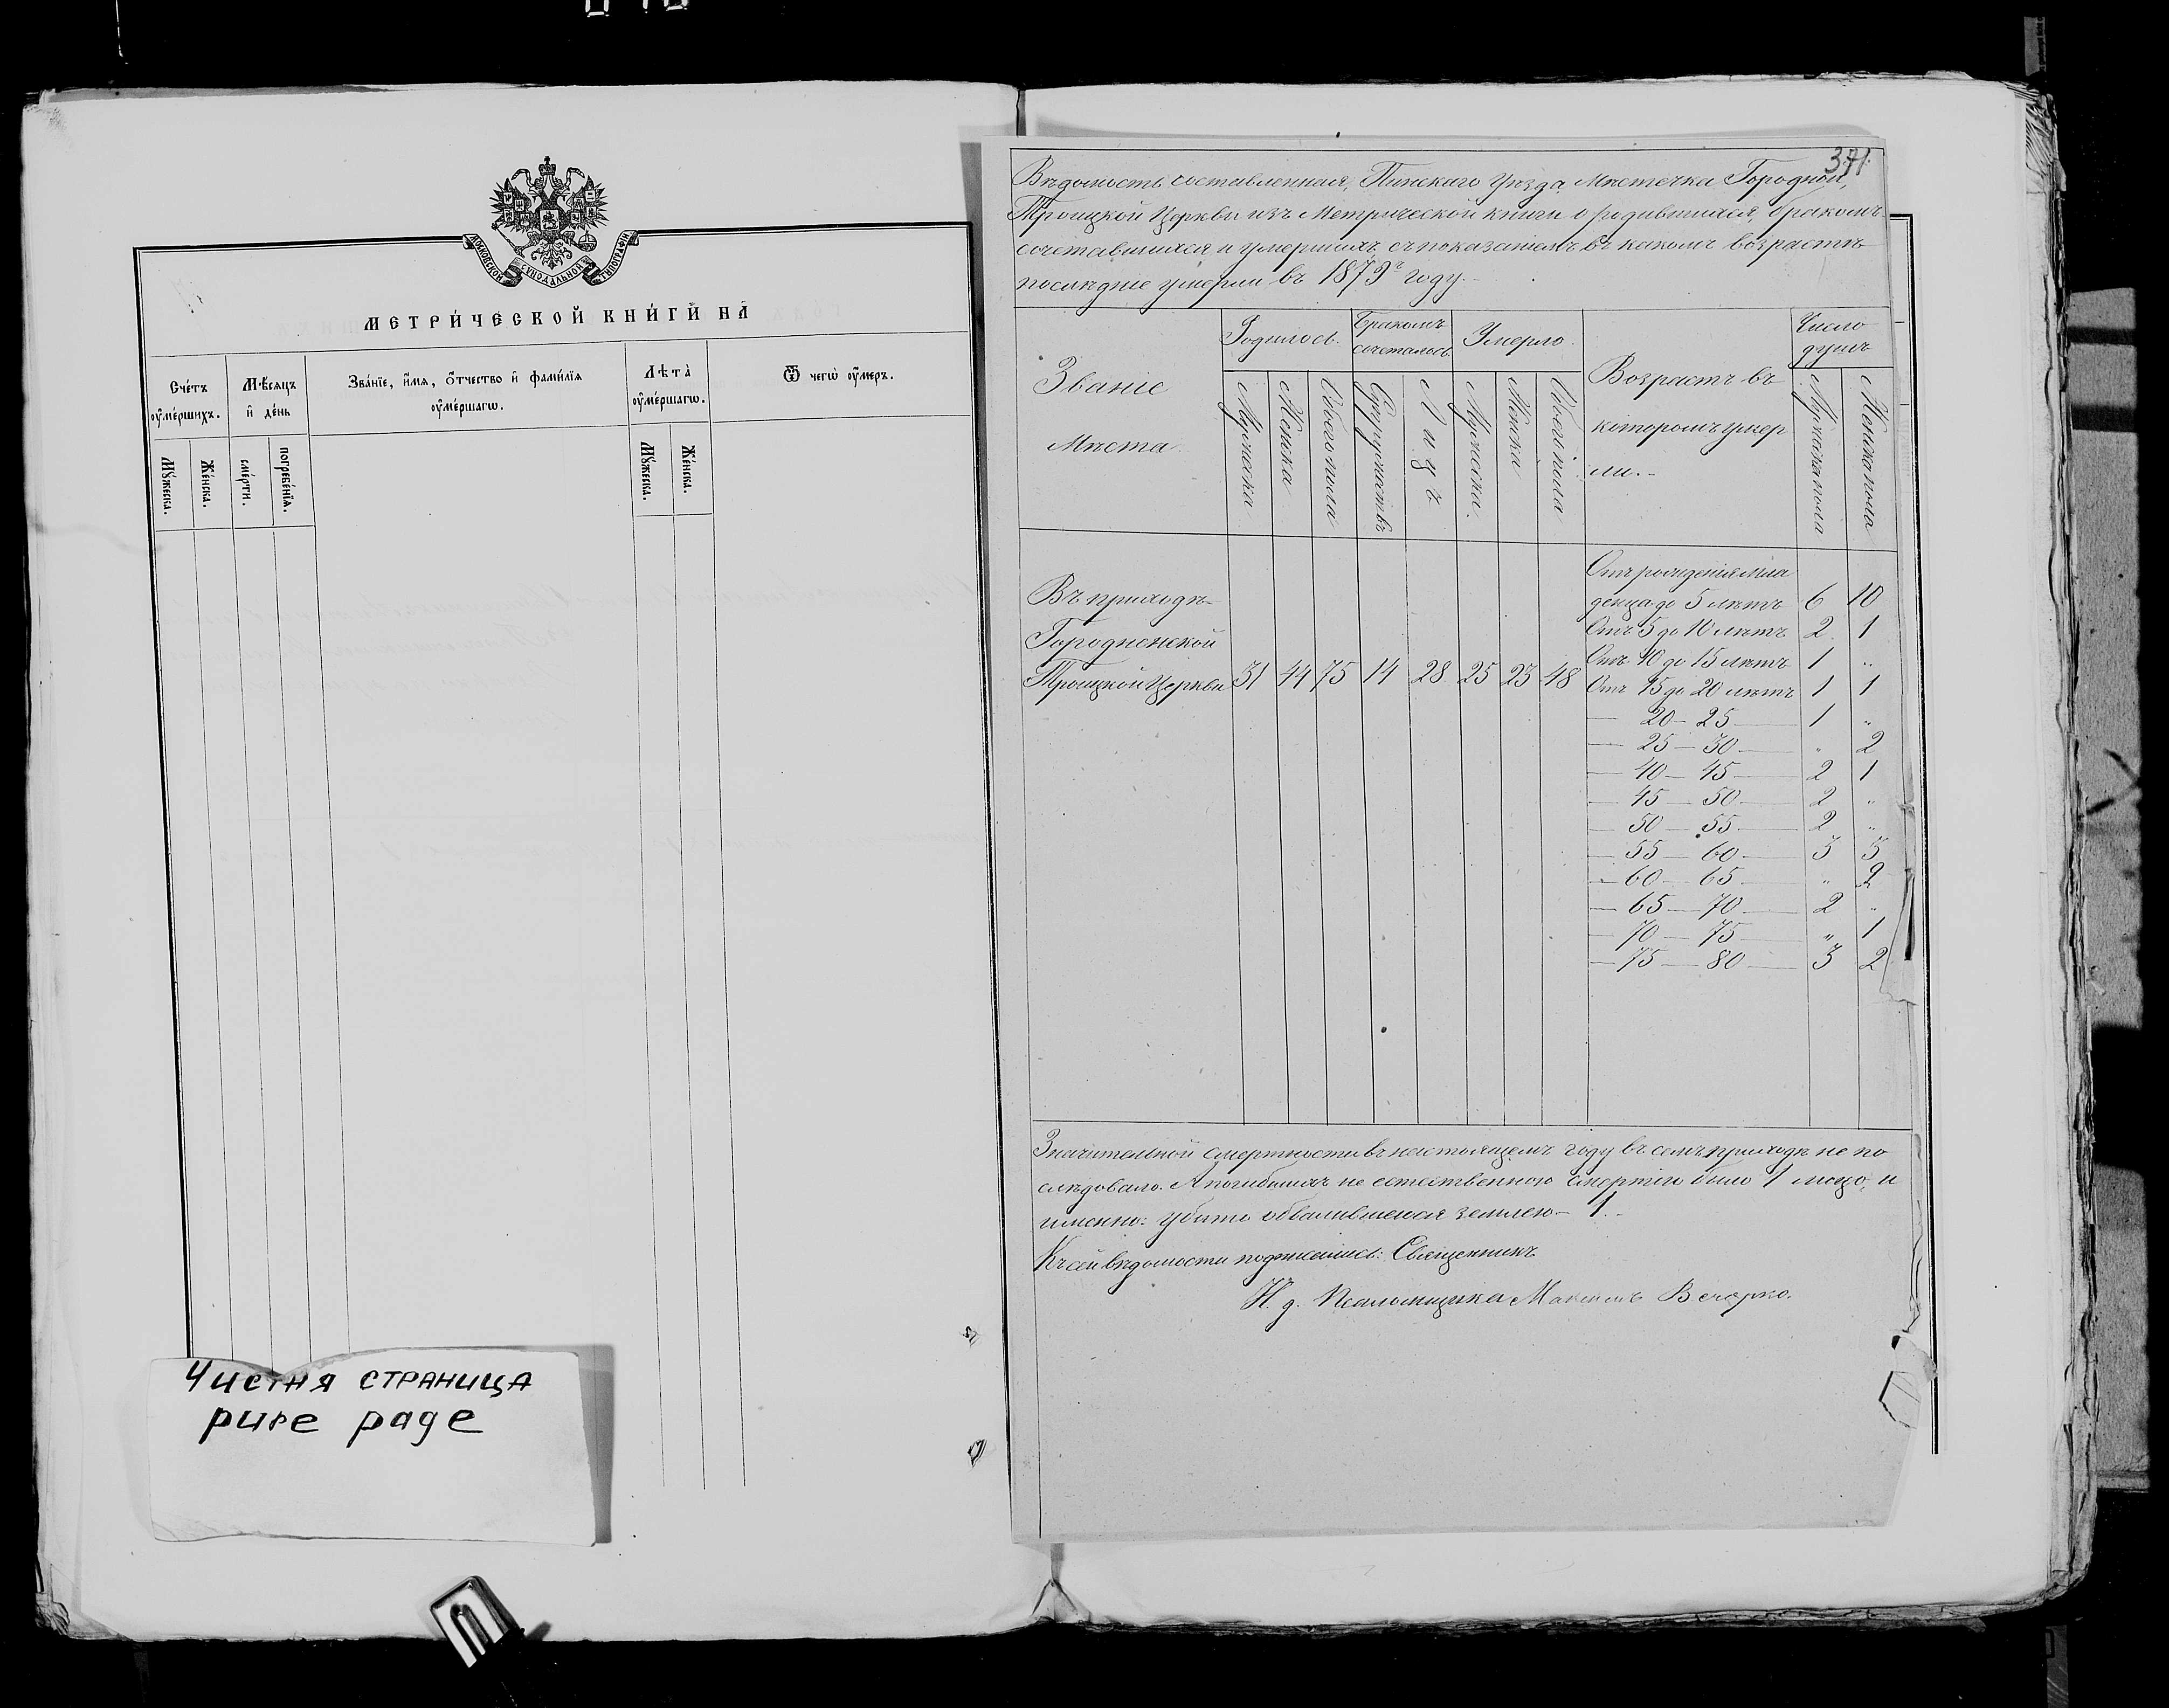 МОСКОВСКОЙ СѴНОДАЛЬНОЙ ТИПОГРАФІИ
МЕТРИ́ЧЕСКОЙ КНИ́ГИ НА̀
Сче́тъ ᲂу҆ме́ршихъ.
Мѣ́сяцъ и҆ де́нь
Зва́нїе, и҆́мя, ѻ҆́тчество и҆ фами́лїя ᲂу҆ме́ршагѡ.
Лѣ́та ᲂу҆ме́ршагѡ.
Ѿ чегѡ̀ ᲂу҆́меръ.
Мꙋ́жеска.
Же́нска.
сме́рти.
погребе́нїя.
Мꙋ́жеска.
Же́нска.
Чистая страница
pure page
371.
Вѣдомость составленная, Пинскаго Уѣзда Мѣстечка Городной,
Троицкой Церкви изъ Метрической книги о родившихся, бракомъ
сочетавшихся и умершихъ, съ показаніемъ въ какомъ возрастѣ
послѣдніе умерли въ 1879 году.-
Званіе
Мѣста
Родилось.
Бракомъ сочеталось
Умерло.
Возрастъ въ
которомъ умер
ли.-
Число душъ
Мужеска
Женска
Обоего пола
Супружествъ
Лицъ
Мужеска.
Женска
Обоего пола
Мужеска пола
Женска пола
Въ приходѣ
Городненской
Троицкой Церкви 31 44 75 14 28 25 23 48
Отъ рожденія мла
денца до 5 лѣтъ 6 10
Отъ 5 до 10 лѣтъ 2 1
Отъ 10 до 15 лѣтъ 1 "
Отъ 15 до 20 лѣтъ 1 1
— 20 — 25 — 1 "
— 25 — 30 — " 2
— 40 — 45 — 2 1
— 45 — 50 — 2 "
— 50 — 55 — 2 "
— 55 — 60 — 3 3
— 60 — 65 — " 2
— 65 — 70 — 2 "
— 70 — 75 — " 1
— 75 — 80 — 3 2
Значительной смертности въ настоящемъ году въ семъ приходѣ не по
слѣдовало. А погибшихъ не естественною смертію было 1 лицо, и
именно: убито обвалившеюся землею – 1.-
Къ сей вѣдомости подписались: Священникъ
И. д. Псаломщика Максимъ Вечорко.